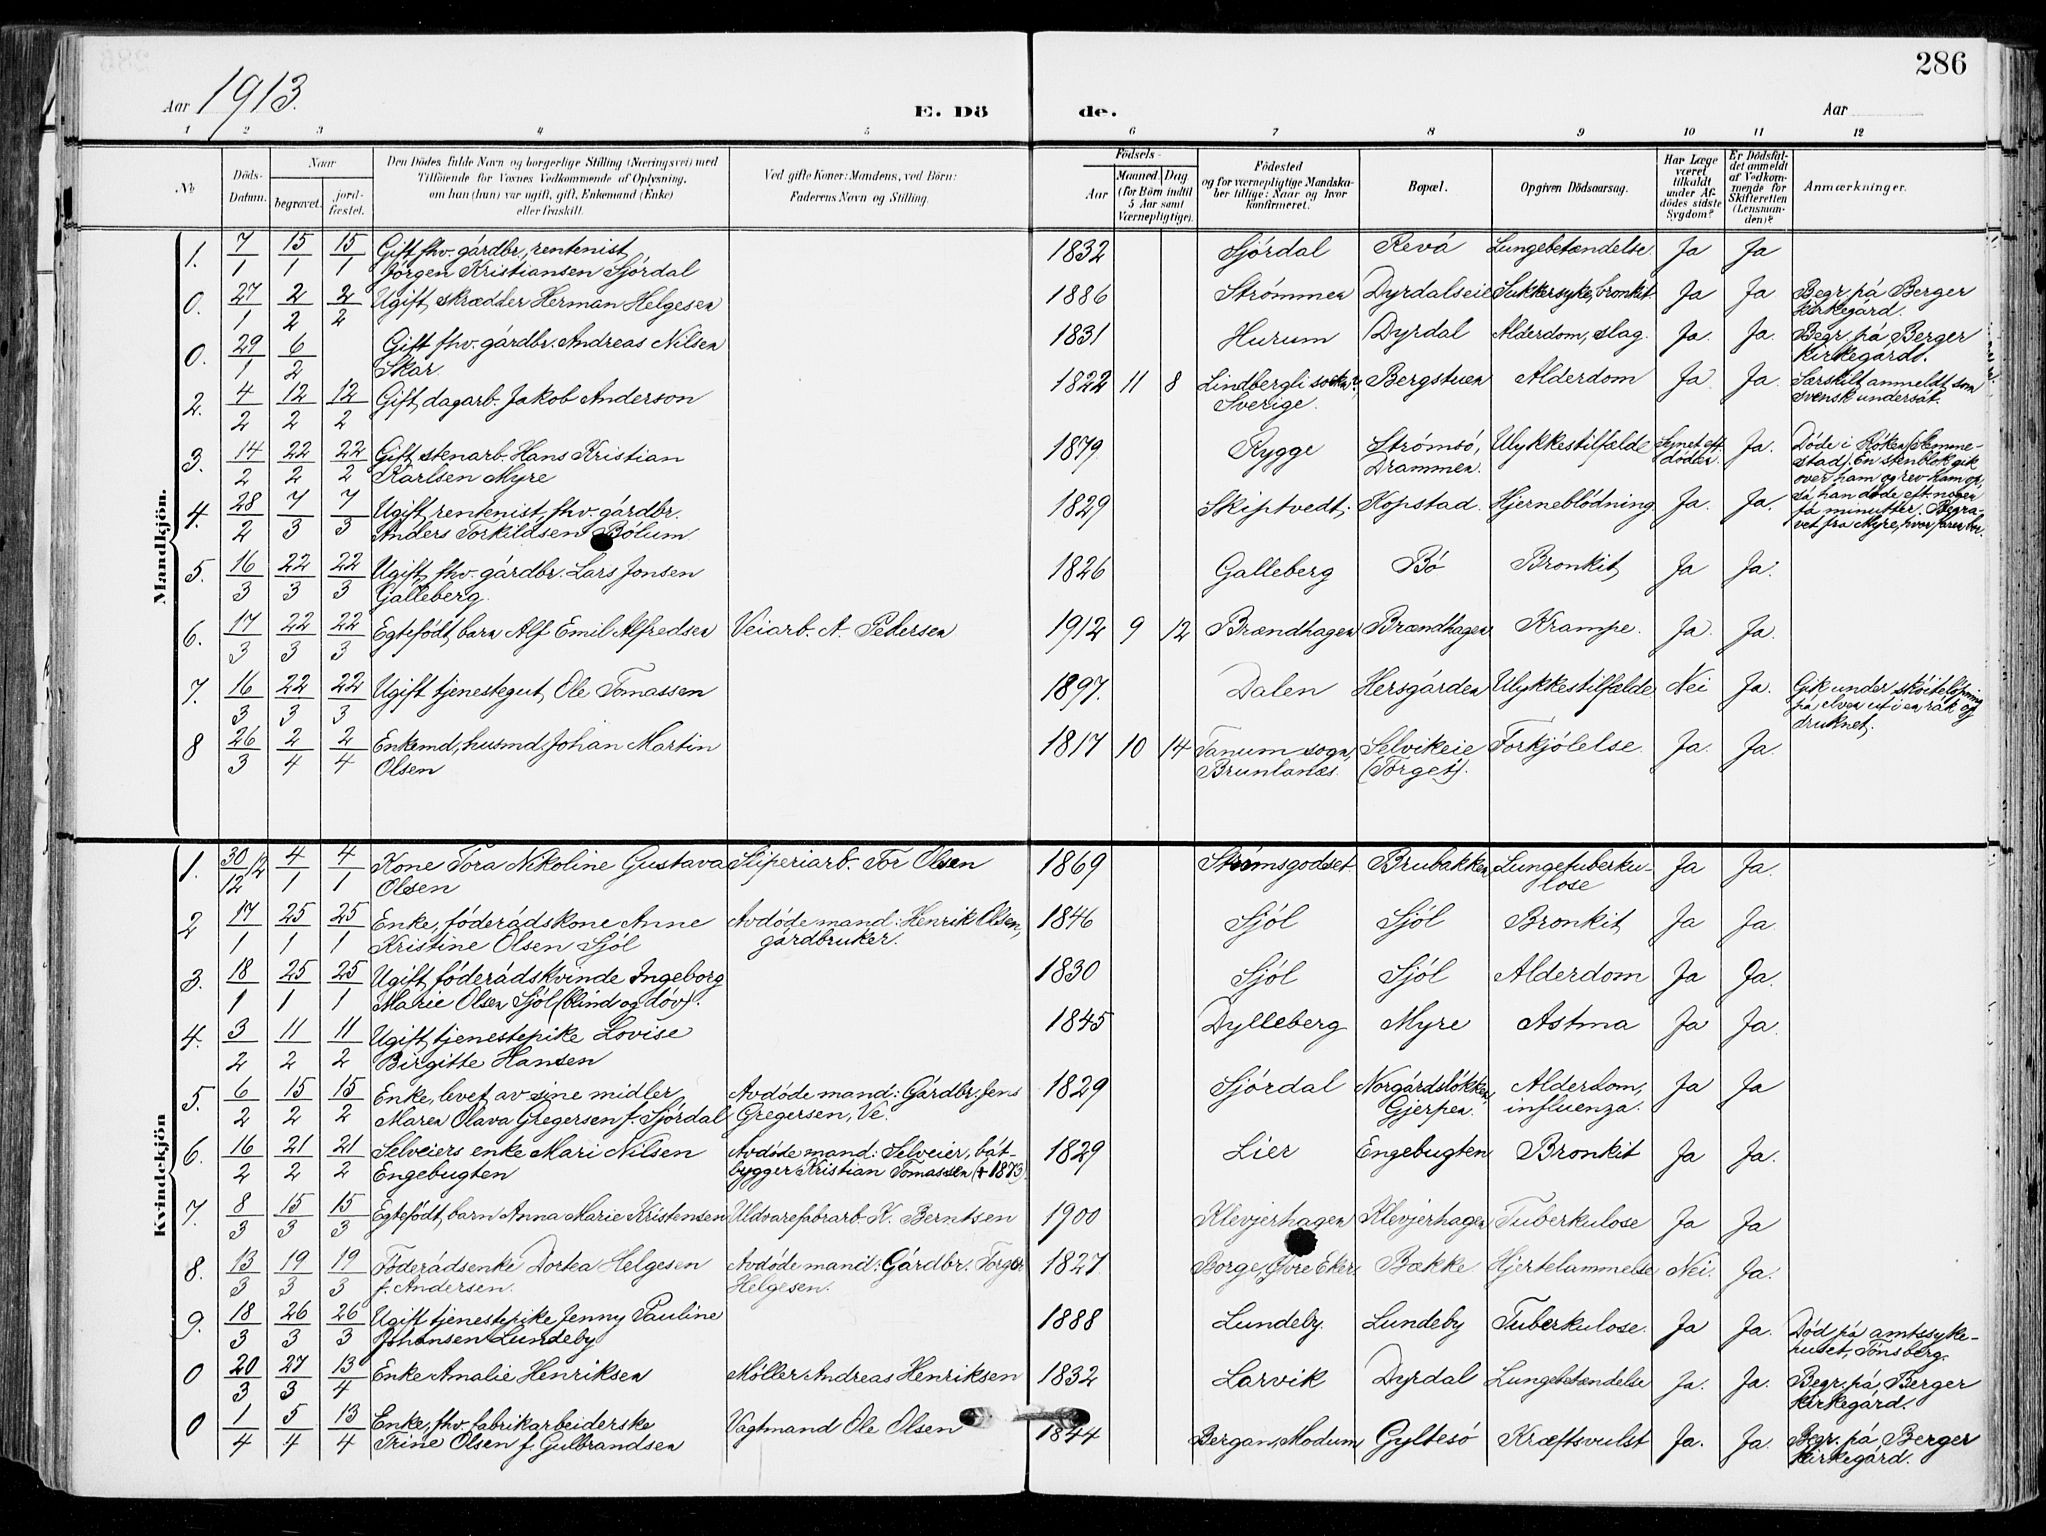 286
Aar 1913.
E. Dö de.
Aar
1 2 3 4 5 6 7 8 9 10 11 12
No
Döds-Datum.
Naar
begravet.
jord-fæstet.
Den Dödes fulde Navn og borgerlige Stilling (Næringsvei) med
Tilföiende for Voxnes Vedkommende af Oplysning,
om han (hun) var ugift, gift, Enkemand (Enke)
eller fraskilt.
Ved gifte Koner: Mandens, ved Börn:
Faderens Navn og Stilling.
Födsels-
Aar
Maaned Dag
(for Börn indtil
5 Aar samt
Værnepligtige).
Födested
og for værnepligtige Mandska-
ber tillige: Naar og hvor
konfirmeret.
Bopæl.
Opgiven Dödsaarsag.
Har Læge
været
tilkaldt
under Af-
dödes sidste
Sygdom?
Er Dödsfal-
det anmeldt
af Vedkom-
mende for
Skifteretten
(Lensman-
den)?
Anmærkninger.
Mandkjön.
1. 7/1 15/1 15/1 Gift fhv. gårdbr., rentenist
Jørgen Kristiansen Sjørdal 1832 Sjørdal Revå Lungebetændelse. Ja Ja
0. 27/1 2/2 2/2 Ugift skrædder Herman Helgesen 1886 Strømmen Dyrdalseie Sukkersyke, bronkit Ja Ja Begr. på Berger
kirkegård.
0. 29/1 6/2 Gift fhv. gårdbr. Andreas Nilsen
Skar. 1831 Hurum Dyrdal Alderdom, slag. Ja. Ja. Begr. på Berger
kirkegård.
2. 4/2 12/2 12/2 Gift dagarb. Jakob Anderson 1822 11 8 Lindbergli
Sverige. Bergstuen Alderdom Ja. Ja. Særskilt anmeldt som
svensk undersåt.
3. 14/2 22/2 22/2 Gift stenarb. Hans Kristian
Karlsen Myre 1879 Rygge Strømsø,
Drammen. Ulykkestilfælde Synet eft.
døden. Ja. Døde i Røken (Slemme-
stad). En stenblok gik
over ham og rev ham op,
så han døde eft. nogen
få minutter. Begra-
vet fra Myre, hvor
4. 28/2 7/3 7/3 Ugift rentenist, fhv. gårdbr.
Anders Torkildsen Bølum 1829 Skiptvedt. Kopstad. Hjerneblødning Ja. Ja.
5. 16/3 22/3 22/3 Ugift fhv. gårdbr. Lars Jonsen
Galleberg. 1826 Galleberg Bø Bronkit Ja Ja.
6. 17/3 22/3 22/3 Egtefødt barn Alf Emil Alfredsen Veiarb. A. Petersen 1912 9 12 Brændhagen Brændhagen Krampe. Ja. Ja.
7. 16/3 22/3 22/3 Ugift tjenestegut Ole Tomassen 1897. Dalen Hersgården Ulykkestilfælde Nei Ja. Gik under skøiteløpning
på elven ut i en råk og
druknet.
8 26/3 2/4 2/4 Enkemd., husmd. Johan Martin
Olsen 1817 10 14 Tanum sogn,
Brunlanæs. Selvikeie
(Torget). Forkjølelse. Ja. Ja.
Kvindekjön
1. 30/12 12 4/1 4/1 Kone Tora Nikoline Gustava
Olsen Sliperiarb. Tor Olsen 1869 Strømsgodset Brubakken Lungetuberku-
lose Ja Ja.
2 17/1 25/1 25/1 Enke, føderådskone Anne
Kristine Olsen Sjøl Avdøde mand: Henrik Olsen,
gårdbruker. 1846 Sjøl Sjøl Bronkit Ja Ja.
3. 18/1 25/1 25/1 Ugift føderådskvinde Ingeborg
Marie Olsen Sjøl (blind og døv). 1830 Sjøl Sjøl Alderdom Ja Ja.
4. 3/2 11/2 11/2 Ugift tjenestepike Lovise
Birgitte Hansen 1845 Dylleberg Myre Astma Ja Ja.
5. 6/2 15/2 15/2 Enke, levet av sine midler,
Maren Olava Gregersen f. Sjørdal Avdøde mand: Gårdbr. Jens
Gregersen, Ve. 1829 Sjørdal Norgårdsløkken,
Gjerpen. Alderdom,
influenza. Ja Ja
6. 16/2 21/2 21/2 Selveiers enke Mari Nilsen
Engebugten Avdøde mand: Selveier, båt-
bygger Kristian Tomassen († 1873). 1829 Lier Engebugten Bronkit Ja Ja.
7. 8/3 15/3 15/3 Egtefødt barn Anna Marie Kristensen Uldvarefabrarb. K. Berntsen 1900 Klevjerhagen Klevjerhagen Tuberkulose Ja Ja
8. 13/3 19/3 19/3 Føderådsenke Dortea Helgesen
f. Andersen. Avdøde mand: Gårdbr. Torger
Helgesen. 1827 Borge, Øvre Eker. Bække Hjertelammelse Nei. Ja.
9. 18/3 26/3 26/3 Ugift tjenestepike Jenny Pauline
Johansen Lundeby 1888 Lundeby. Lundeby Tuberkulose. Ja Ja. Død på amtssyke-
huset, Tønsberg.
0 20/3 27/3 13/4 Enke Amalie Henriksen Møller Andreas Henriksen 1832 Larvik Dyrdal Lungebetændelse Ja. Ja. Begr. på Berger
kirkegård.
0 1/4 5/4 13/4 Enke, fhv. fabrikarbeiderske
Trine Olsen f. Gulbrandsen Vagtmand Ole Olsen 1844 Bergan, Modum Gyltesø Kræftsvulst Ja. Ja Begr. på Berger
kirkegård.